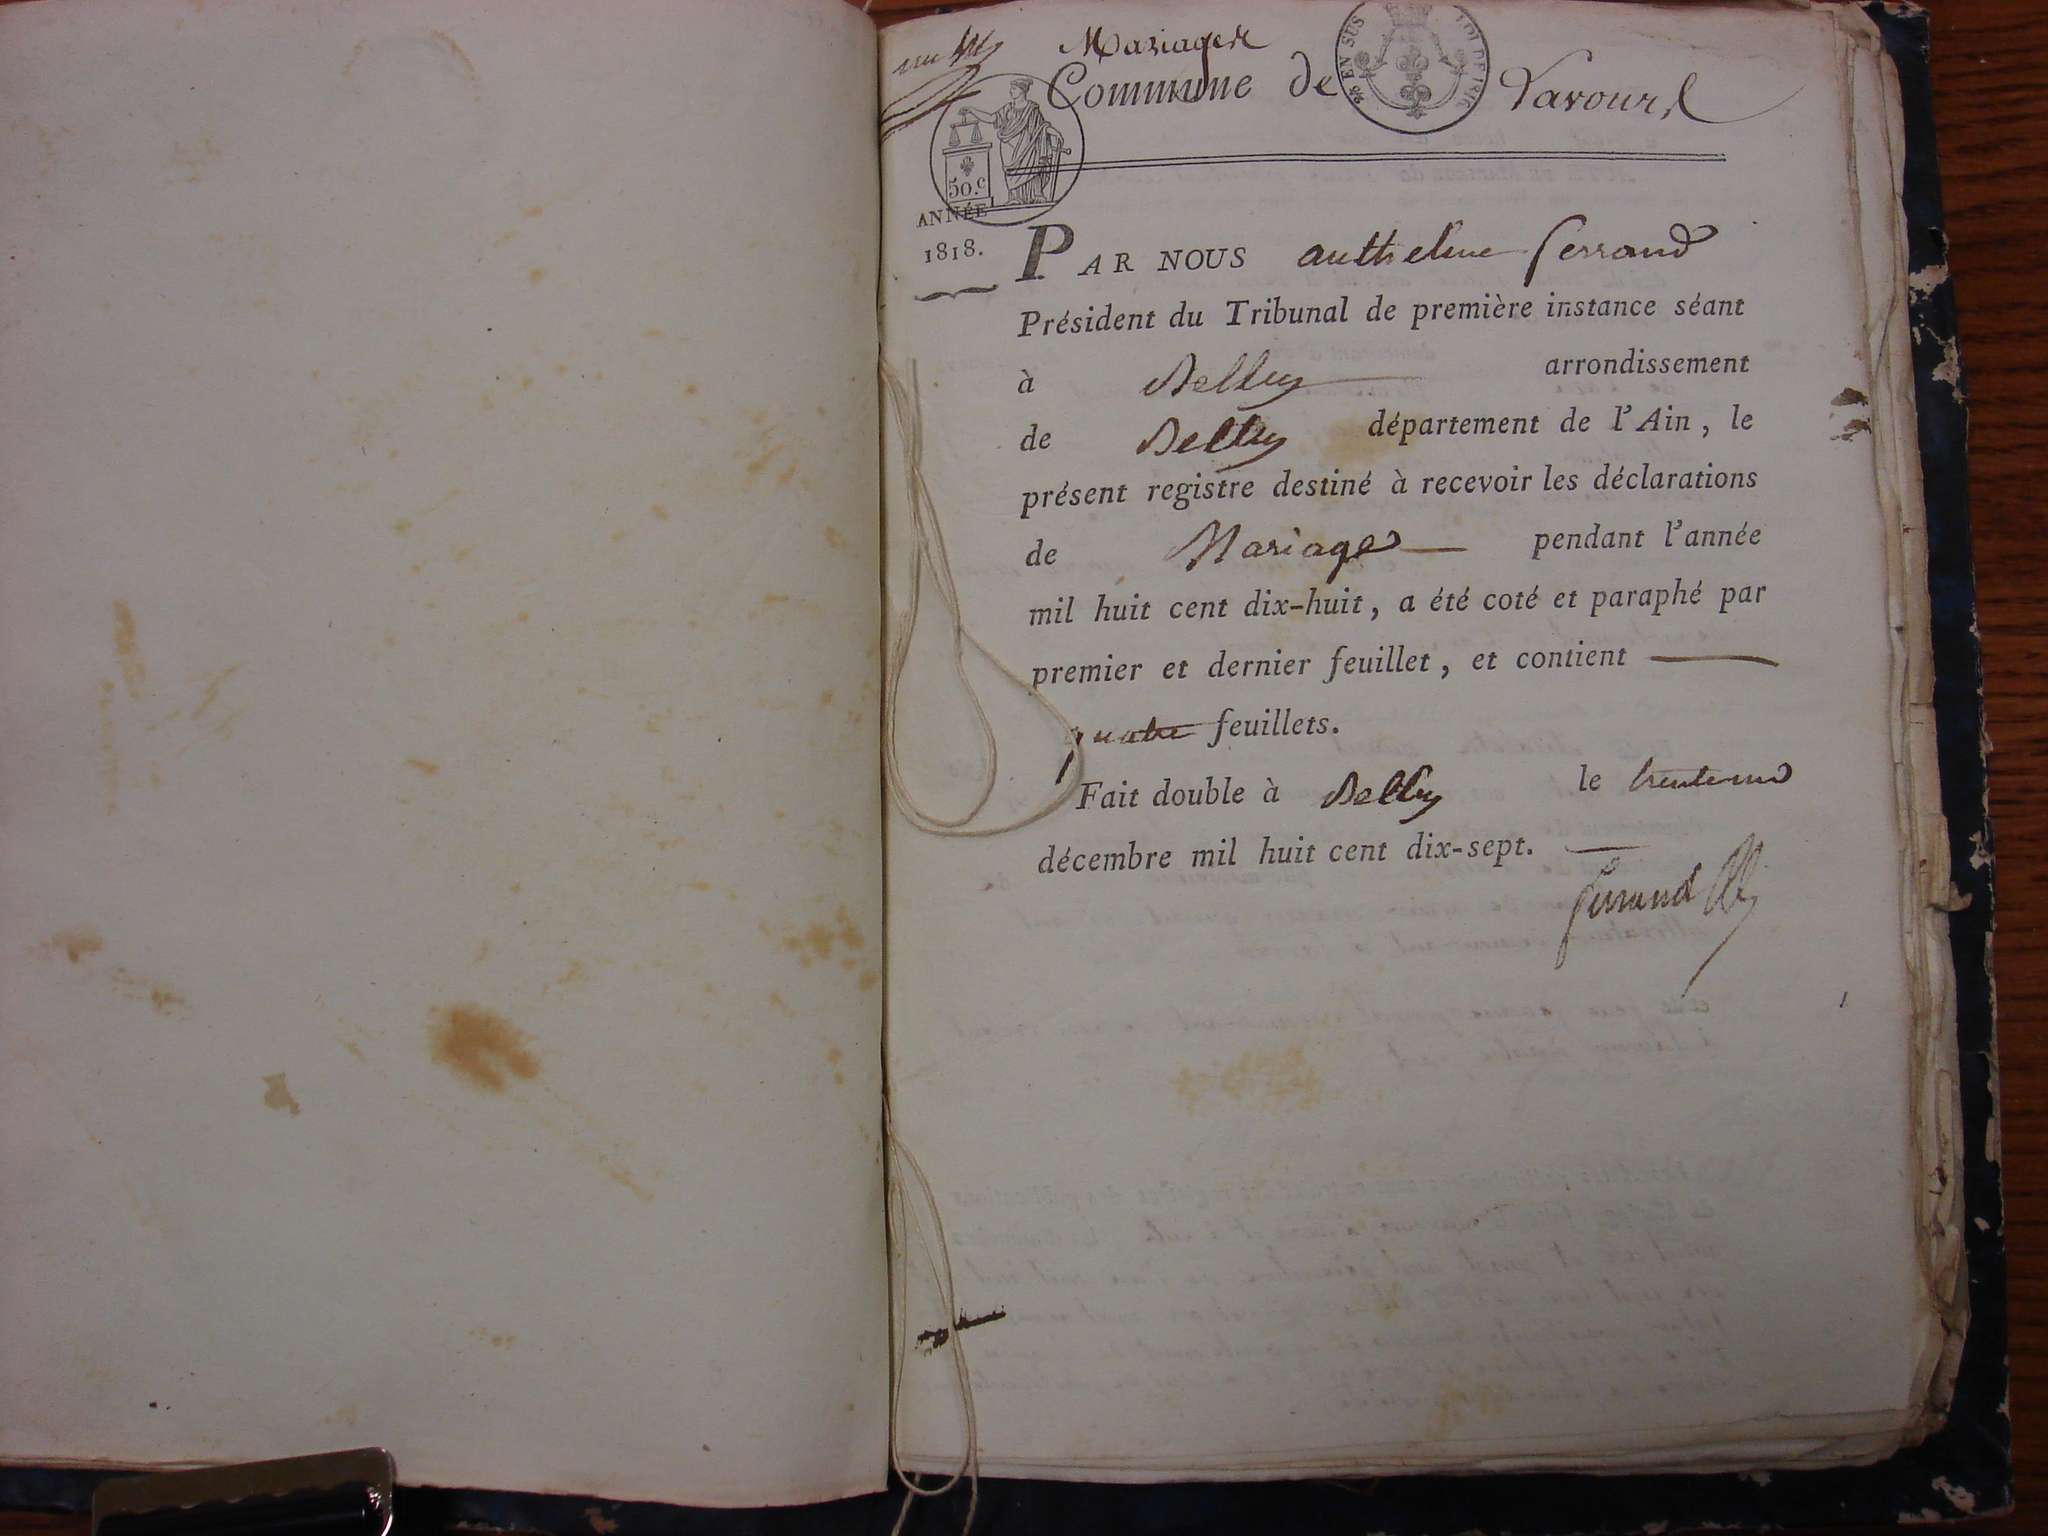 Mariages
Commune de Lavours
EN SUS
50.c
ANNÉE
1818.
PAR NOUS anthelme ferrand
Président du Tribunal de première instance séant
à Belley arrondissement
de Belley département de l'Ain, le
présent registre destiné à recevoir les déclarations
de Mariages pendant l'année
mil huit cent dix-huit, a été coté et paraphé par
premier et dernier feuillet, et contient
quatre feuillets.
Fait double à Belley le trente un
décembre mil huit cent dix-sept.
ferrand